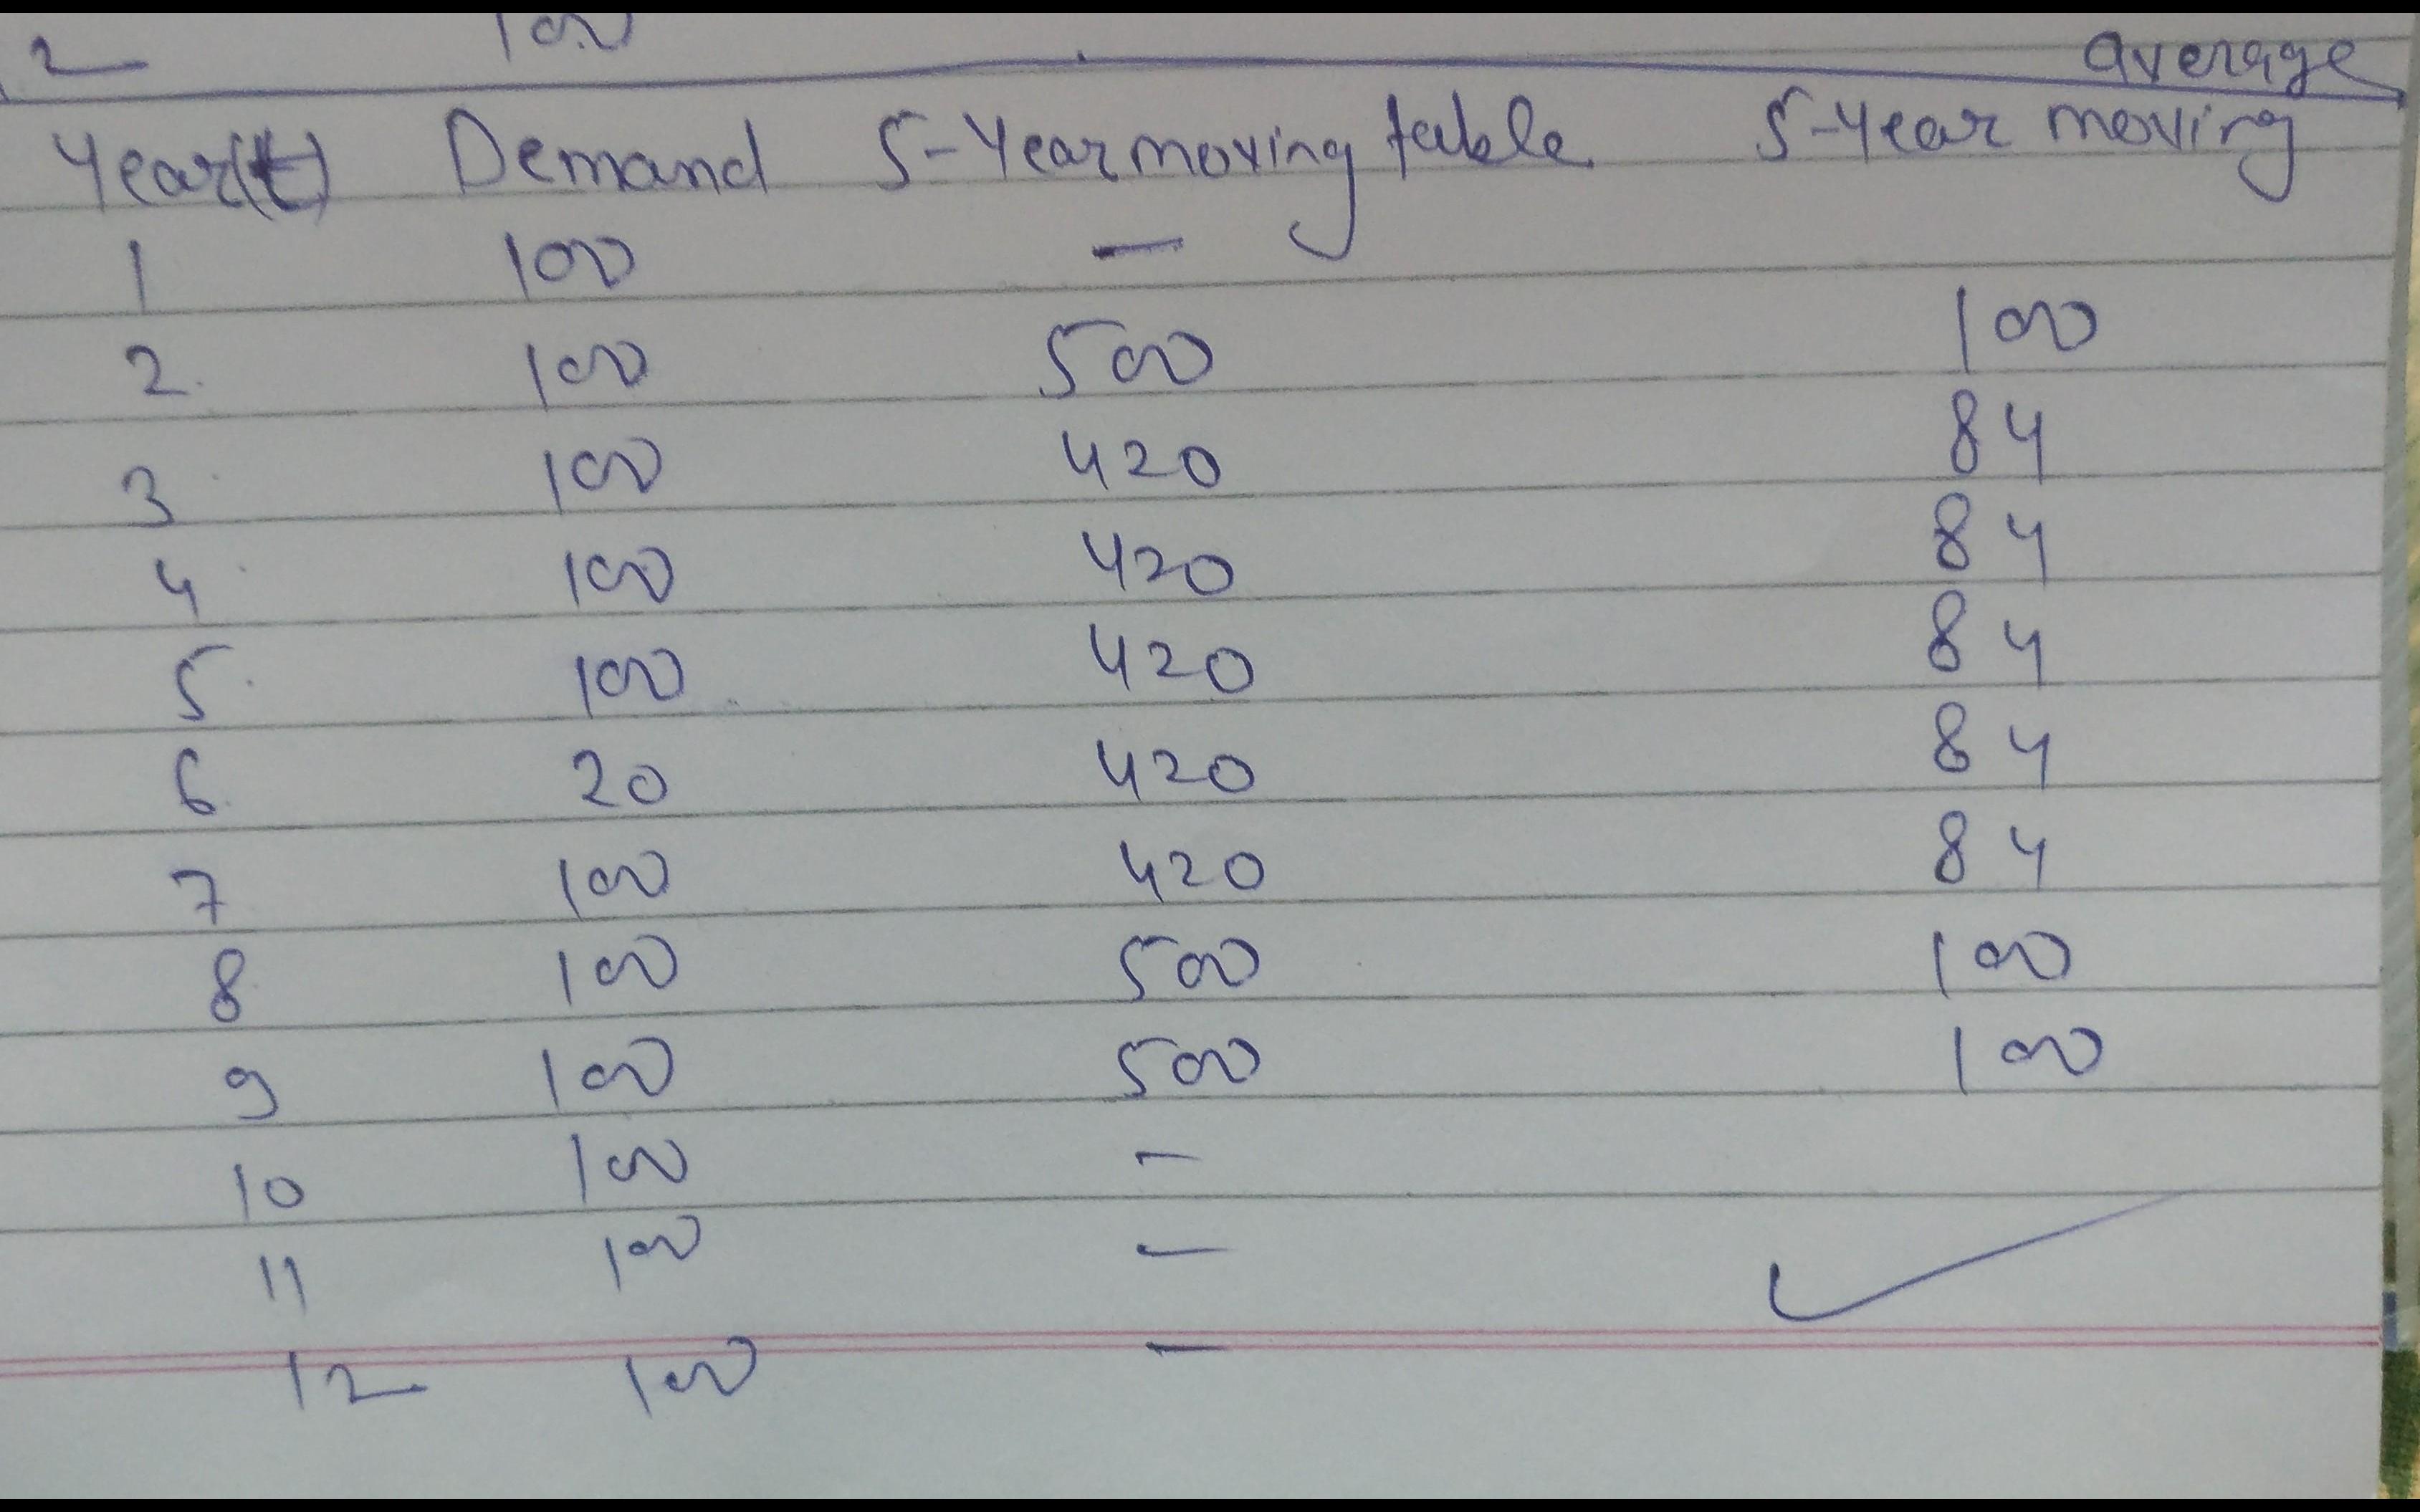 2 100
average
Year(t) Demand 5-Year moving table 5-Year moving
1 100 -
2 100 500 100
3 100 420 84
4 100 420 84
5 100 420 84
6 20 420 84
7 100 420 84
8 100 500 100
9 100 500 100
10 100 -
11 100 -
12 100 -